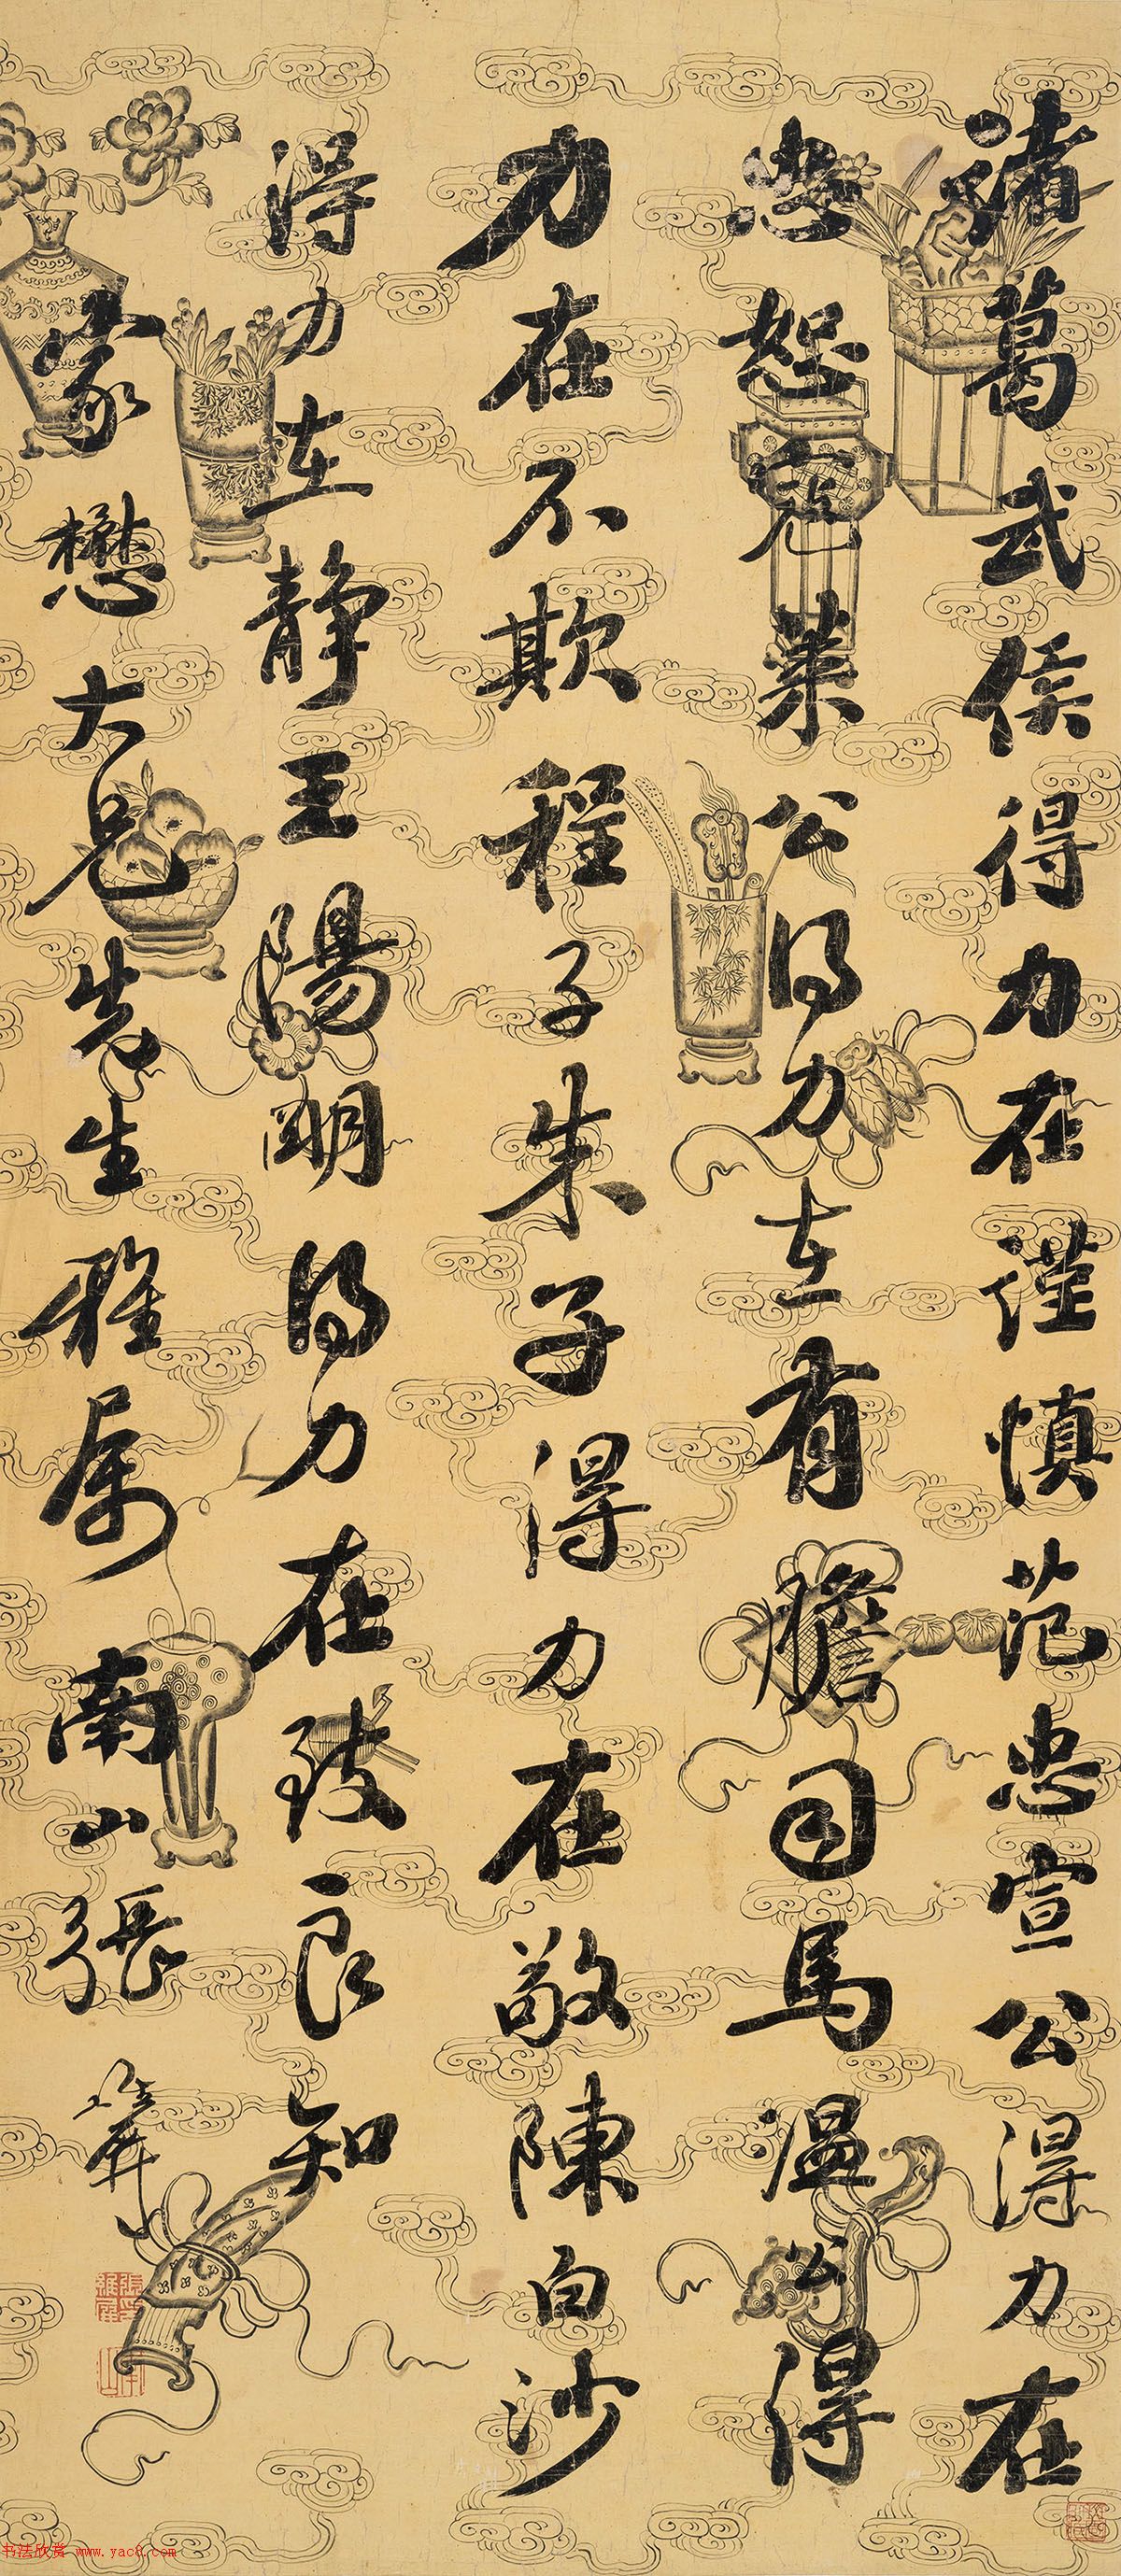 諸葛武侯得力在謹慎范忠宣公得力在
忠恕寇萊公得力在有膽司馬溫公得
力在不欺程子朱子得力在敬陳白沙
得力在靜王陽明得力在致良知
家懋大兄先生雅属
南山張維屏
張維屏
南山
书法欣赏 www.yac8.com